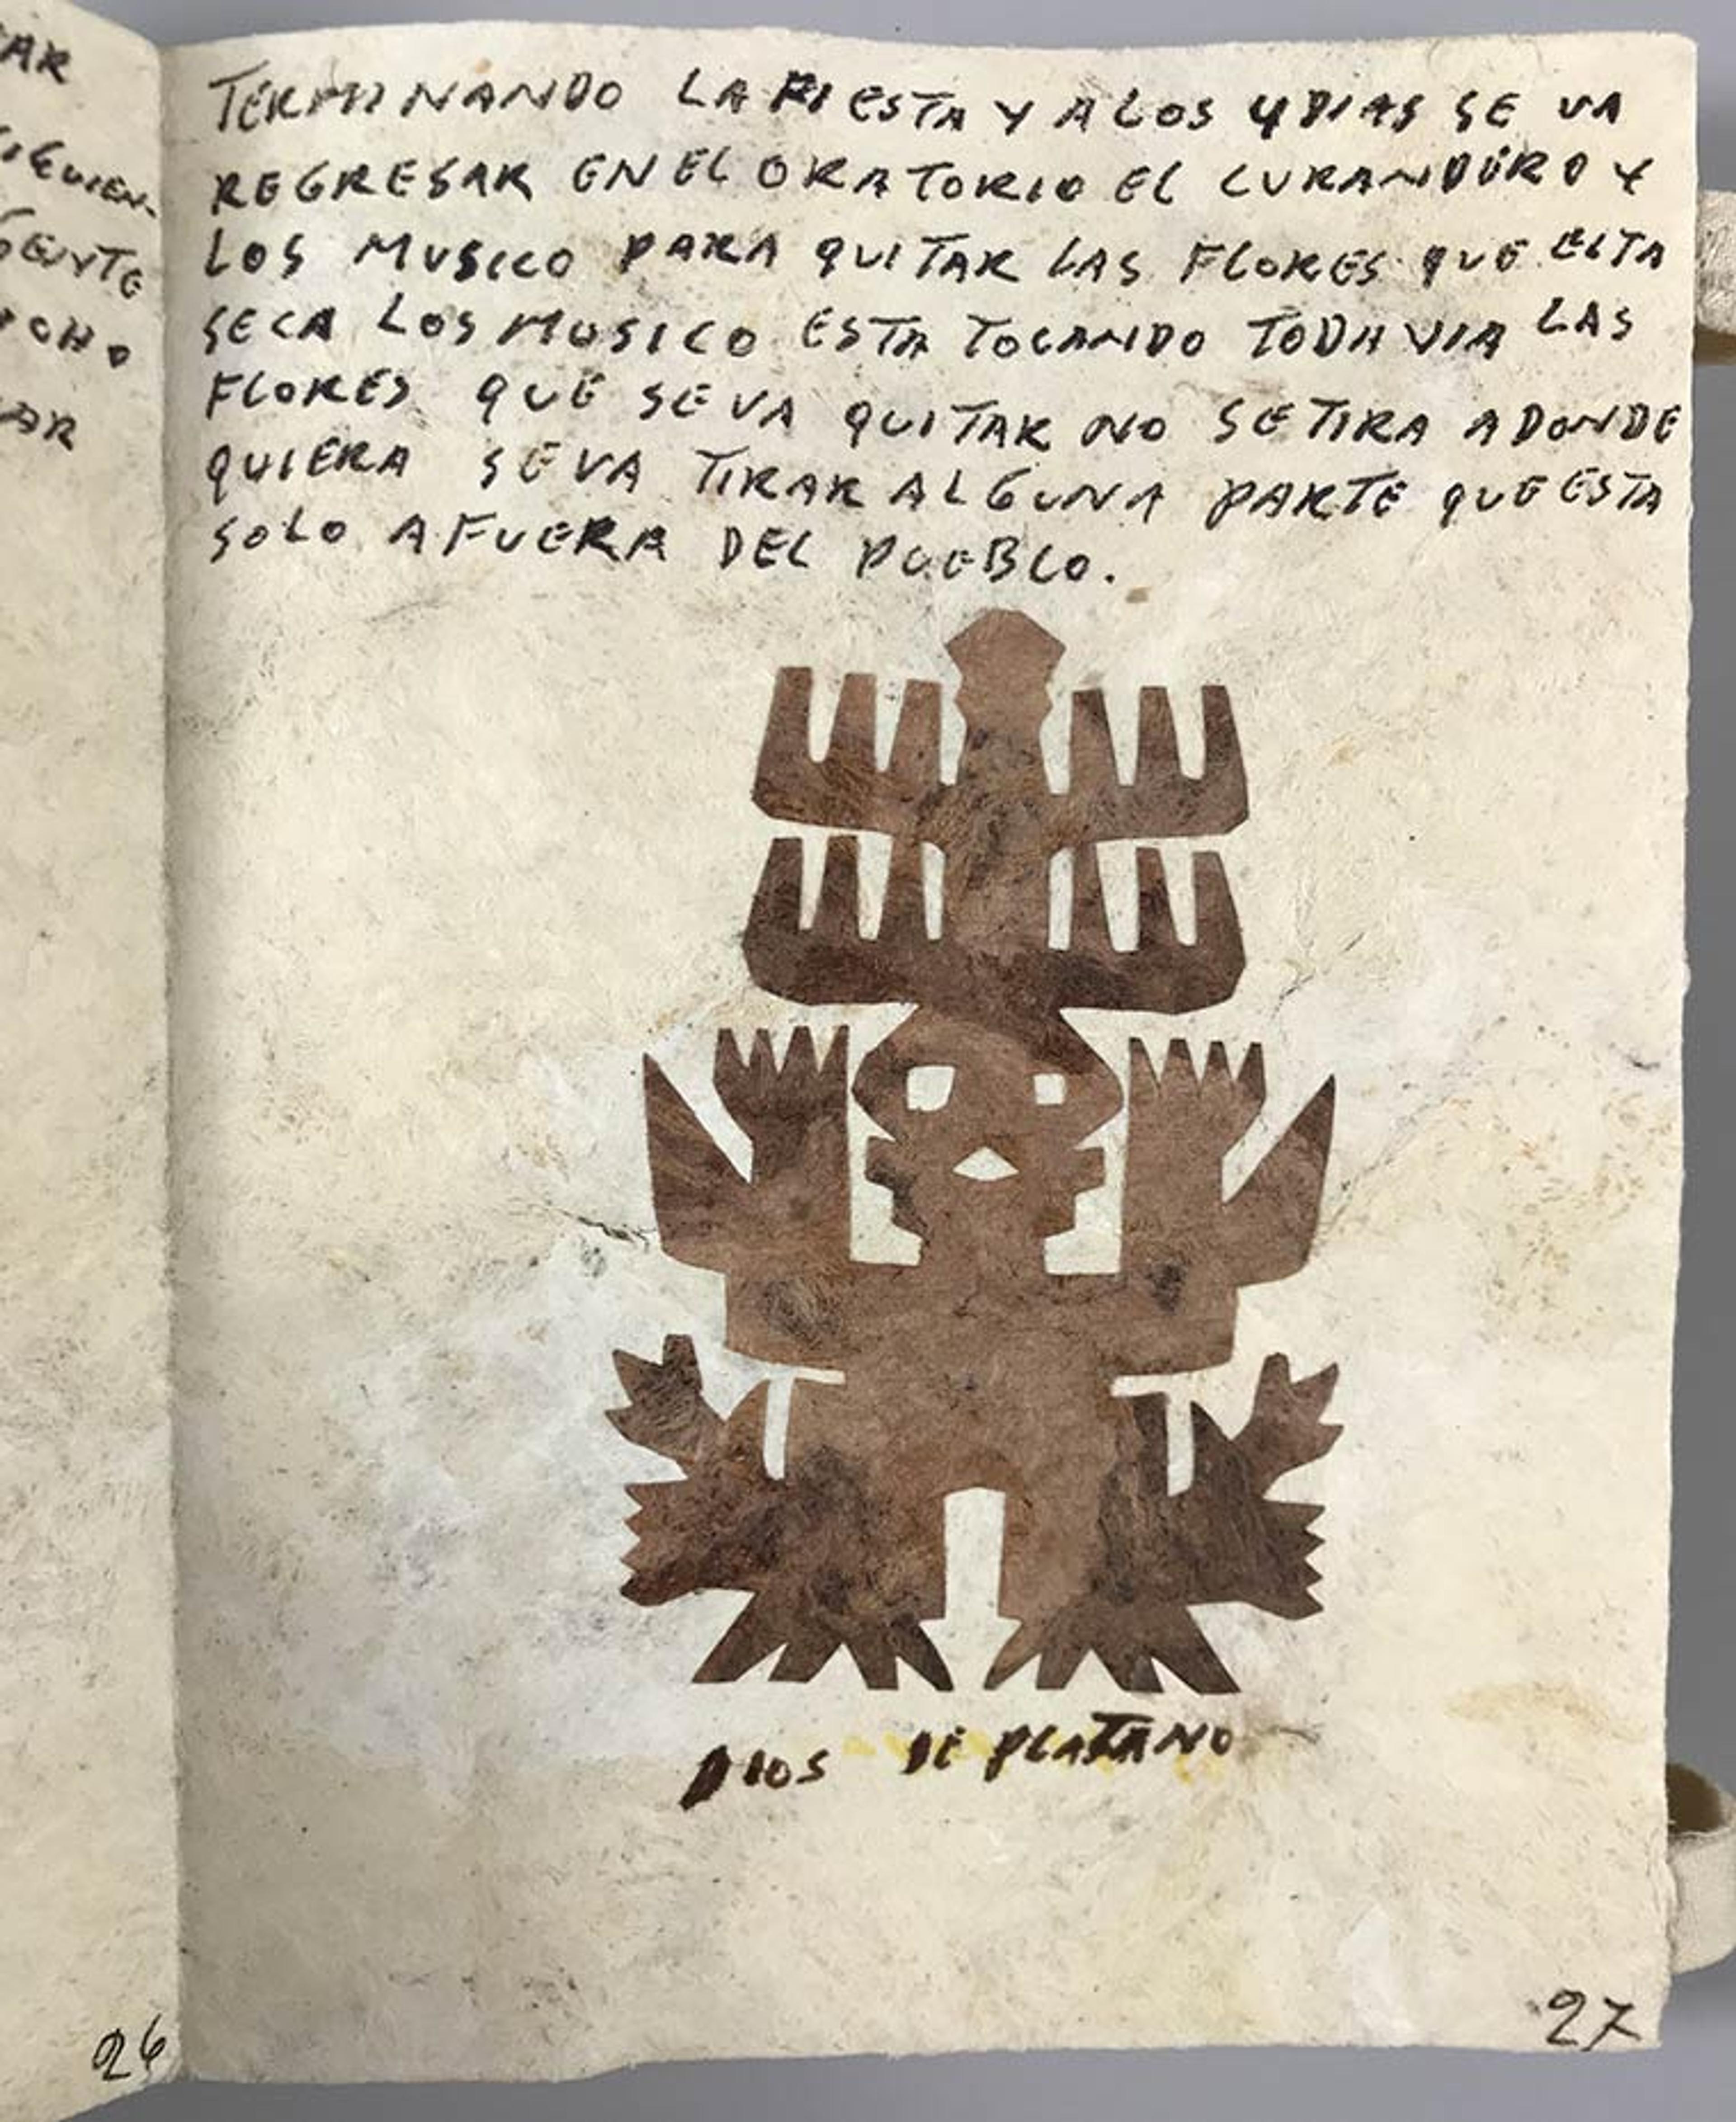 AR
SIGUIEN-
GENTE
AR
26
TERMINANDO LA FIESTA Y A LOS 4 DIAS SE VA
REGRESAR EN EL ORATORIO EL CURANDERO Y
LOS MUSICO PARA QUITAR LAS FLORES QUE ESTA
SECA LOS MUSICO ESTA TOCANDO TODAVIA LAS
FLORES QUE SE VA QUITAR NO SE TIRA ADONDE
QUIERA SE VA TIRAR ALGUNA PARTE QUE ESTA
SOLO AFUERA DEL PUEBLO.
DIOS DE PLATANO
27